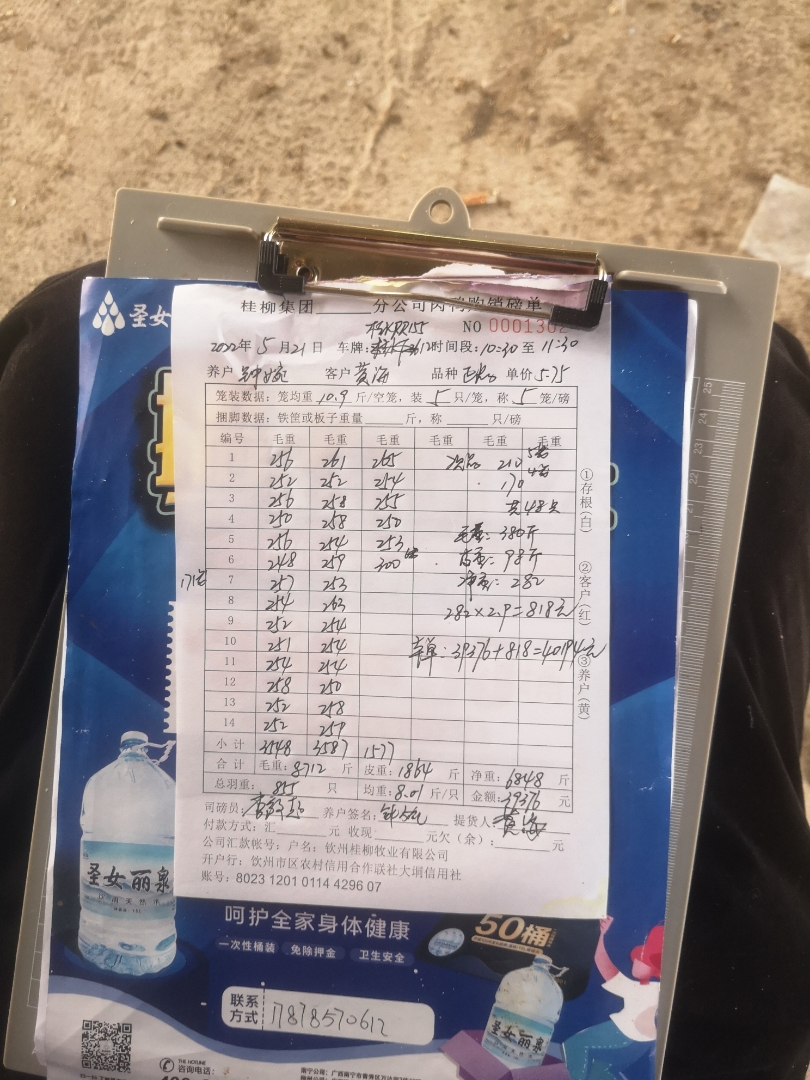 圣女
桂柳集团 分公司肉鸭购销磅单
NO 0001302
2022年5月21日 车牌: 12时间段:10:30至11:30
养户 客户 黄海 品种 单价 5.75
笼装数据:笼均重 10.9 斤/空笼,装 5 只/笼,称 5 笼/磅
捆脚数据:铁筐或板子重量 斤,称 只/磅
编号 毛重 毛重 毛重 毛重 毛重 毛重
1 256 261 265 次品 210 5笼
2 252 252 254 170 4笼
3 256 258 255 共48只
4 250 258 250
5 256 254 253 毛重:380斤
6 248 259 300 皮重:98斤
171笼
7 257 253 净重:282
8 254 263 282×2.9=818元
9 252 254
10 251 254 39376+818=40194元
11 254 254
12 258 250
13 252 258
14 252 257
小计 3548 3587 1577
合计 毛重:8712 斤 皮重:1864 斤 净重:6848 斤
总羽重: 855 只 均重:8.01 斤/只 金额:39376 元
司磅员: 养户签名: 提货人:黄海
付款方式:汇 元 收现 元欠(余): 元
公司汇款帐号:户名:钦州桂柳牧业有限公司
开户行:钦州市区农村信用合作联社大垌信用社
账号:8023 1201 0114 4296 07
①存根(白)
②客户(红)
③养户(黄)
25
24
23
22
21
圣女丽泉
呵护全家身体健康
一次性桶装 免除押金 卫生安全
50桶
联系方式 17878570612
圣女丽泉
THE HOTLINE
咨询电话: